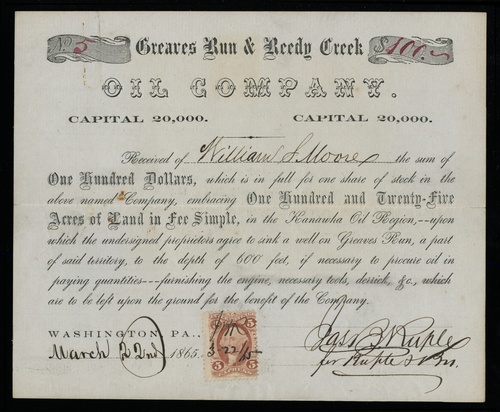 No. 5 Greaves Run & Reedy Creek $100.
OIL COMPANY.
CAPITAL 20,000. CAPITAL 20,000.
Received of William S. Moore the sum of
One Hundred Dollars, which is in full for one share of stock in the
above named Company, embracing One Hundred and Twenty-Five
Acres of Land in Fee Simple, in the Kanawha Oil Region,--upon
which the undersigned proprietors agree to sink a well on Greaves Run, a part
of said territory, to the depth of 600 feet, if necessary to procure oil in
paying quantities---furnishing the engine, necessary tools, derrick, &c., which
are to be left upon the ground for the benefit of the Company.
WASHINGTON, PA.,
March 22nd 1865.
5 5
3 22/65
5 5
Jas. B. Ruple
for Ruple & Bro.